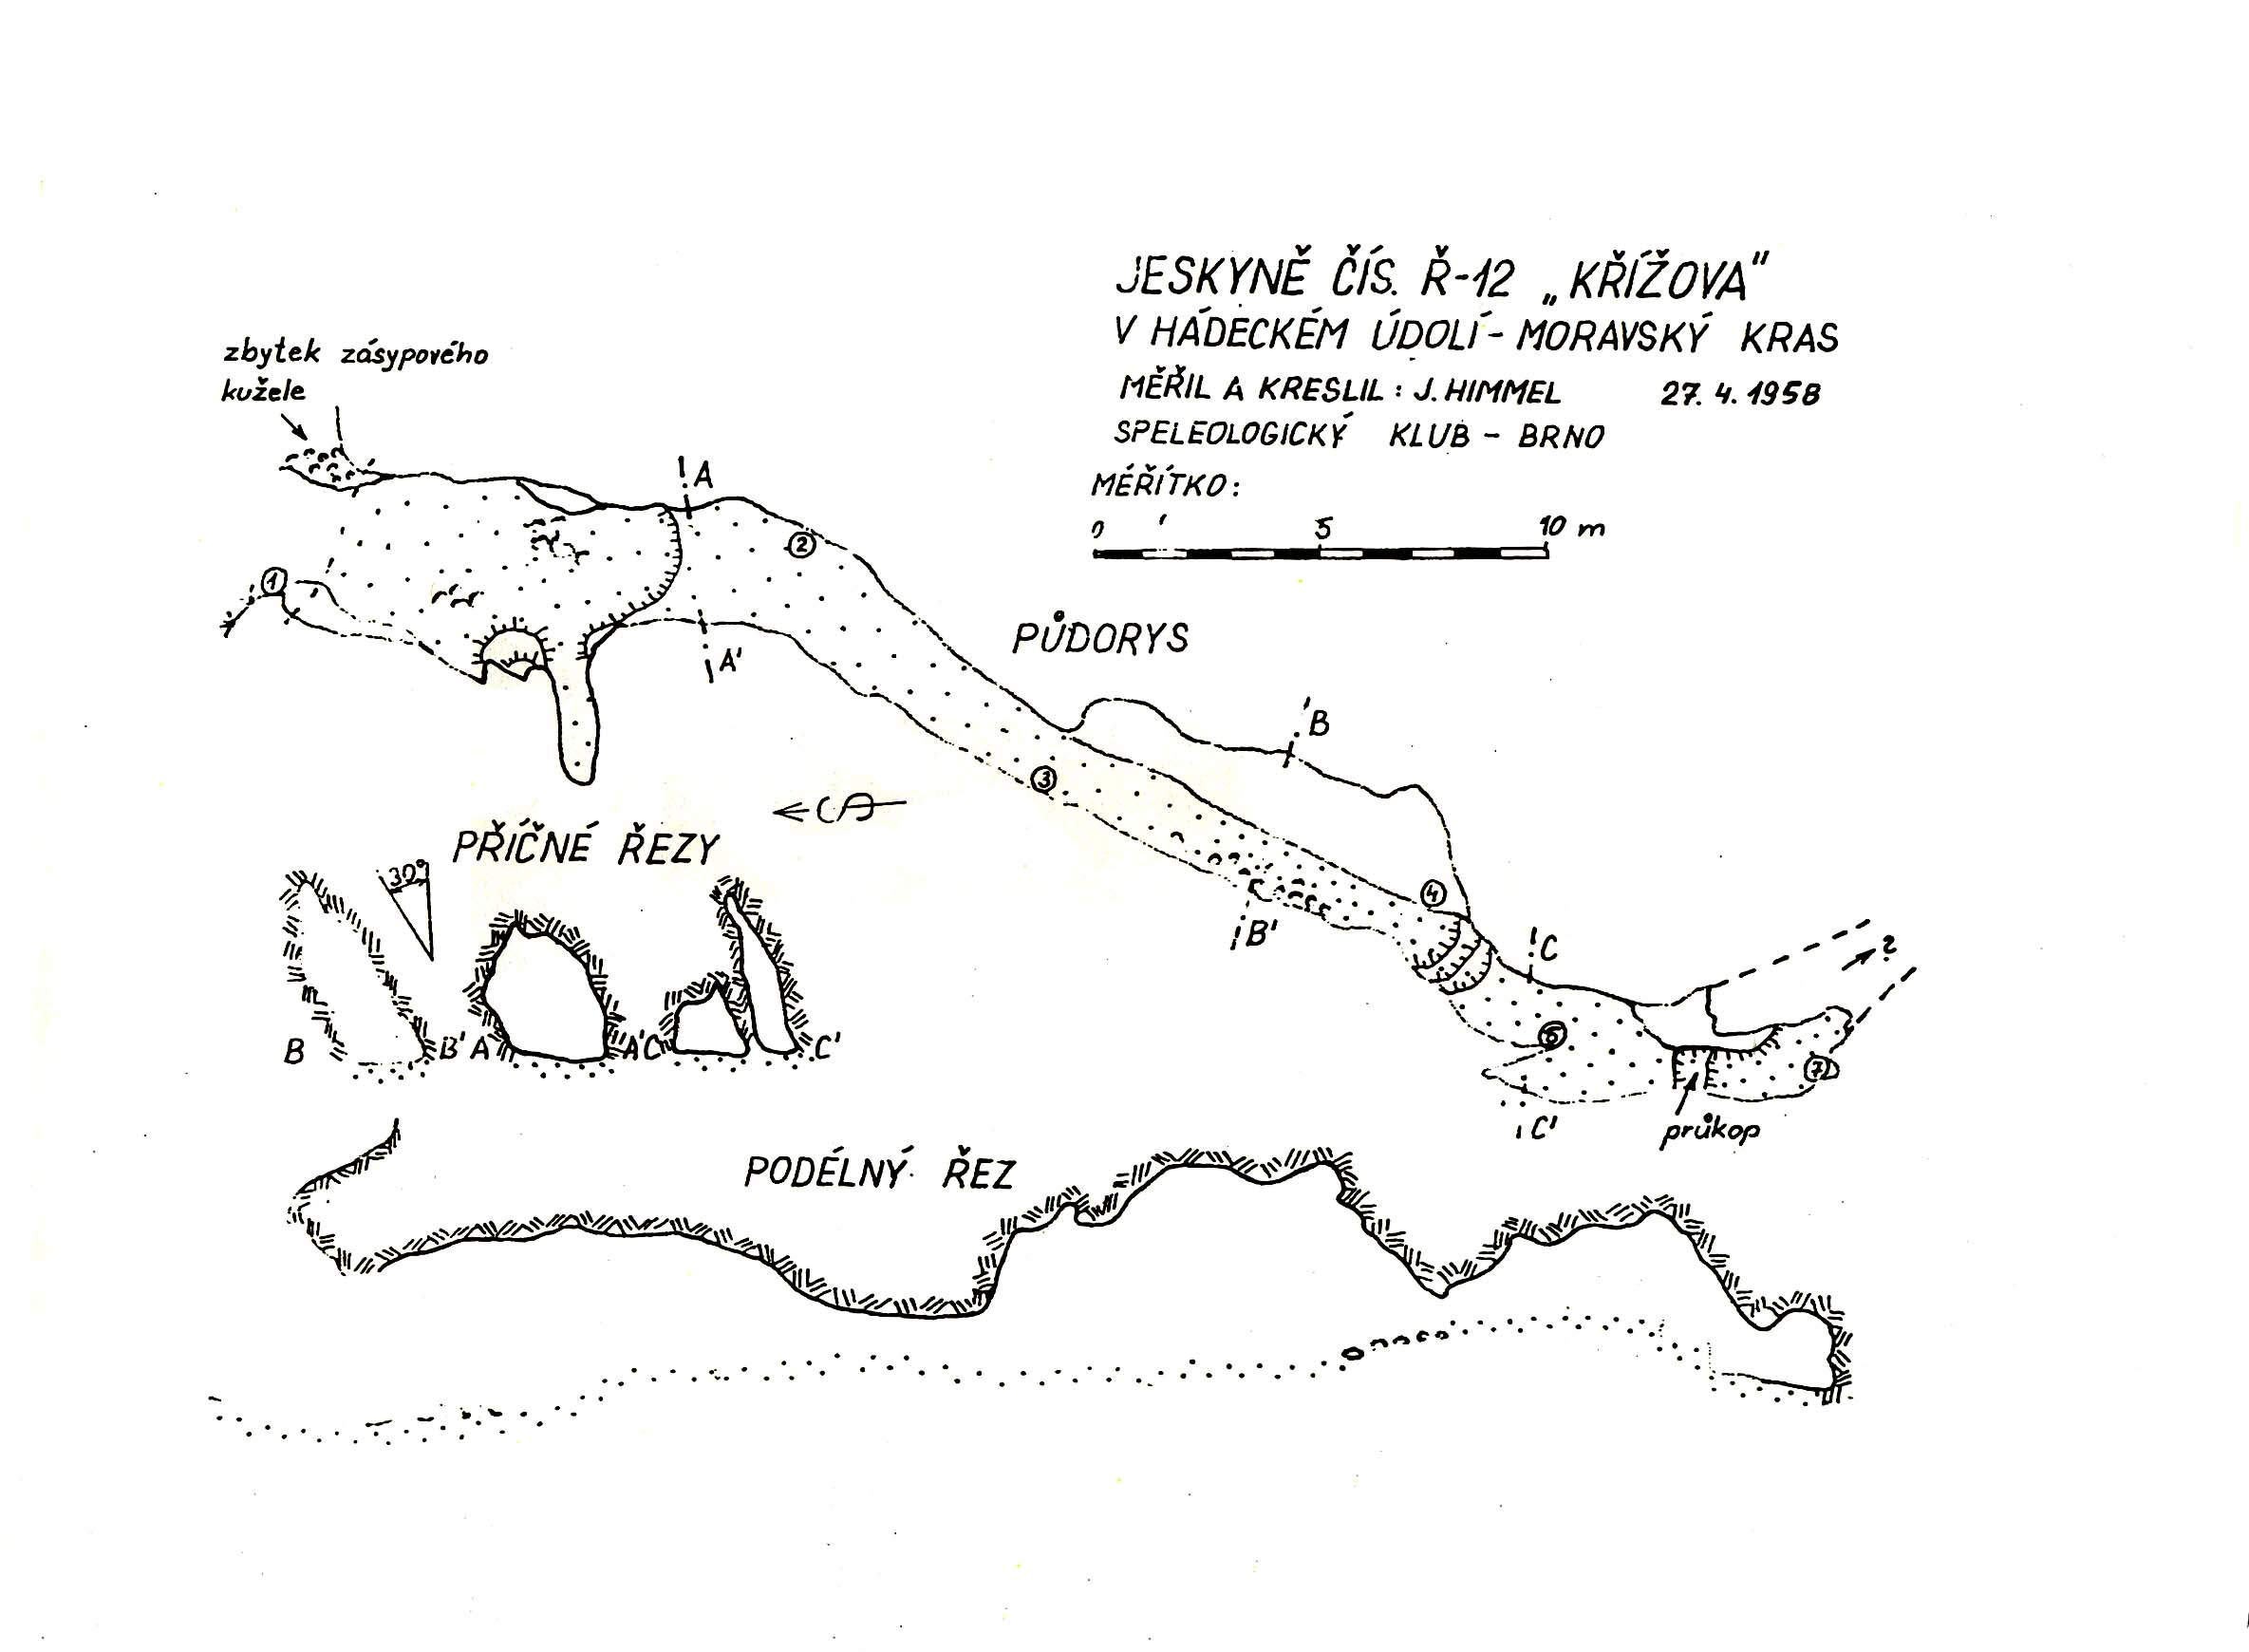 JESKYNĚ ČÍS. Ř-12 „KŘÍŽOVA"
V HÁDECKÉM ÚDOLÍ - MORAVSKÝ KRAS
MĚŘIL A KRESLIL: J. HIMMEL 27. 4. 1958
SPELEOLOGICKÝ KLUB - BRNO
MĚŘÍTKO:
0 5 10 m
zbytek zásypového
kužele
A
2
1
A'
PŮDORYS
B
3
4
B'
C
?
6
7
C'
průkop
S
PŘÍČNÉ ŘEZY
30°
B B' A A' C C'
PODÉLNÝ ŘEZ